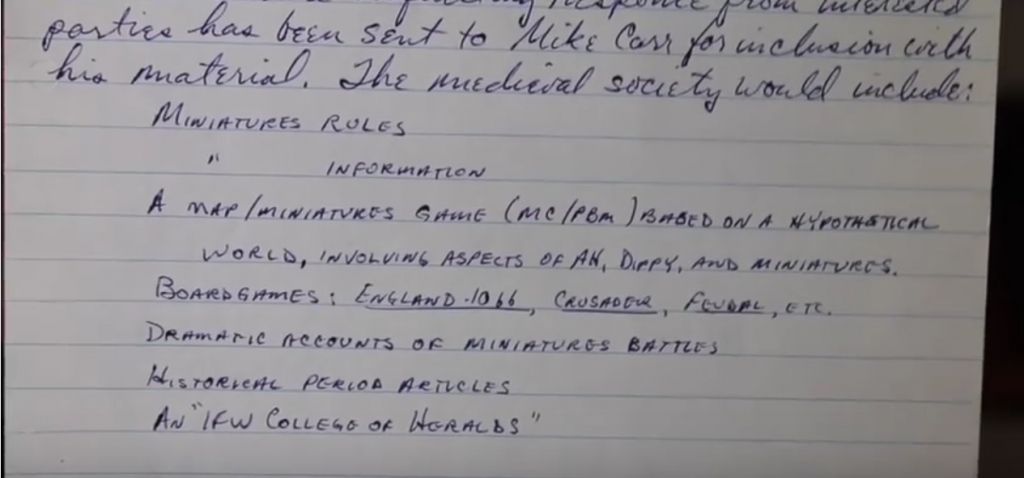 response from interested
parties has been sent to Mike Carr for inclusion with
his material. The medieval society would include:
MINIATURES RULES
" INFORMATION
A MAP/MINIATURES GAME (MC/PBM) BASED ON A HYPOTHETICAL
WORLD, INVOLVING ASPECTS OF AH, DIPPY, AND MINIATURES.
BOARDGAMES: ENGLAND-1066, CRUSADER, FEUDAL, ETC.
DRAMATIC ACCOUNTS OF MINIATURES BATTLES
HISTORICAL PERIOD ARTICLES
AN "IFW COLLEGE OF HERALDS"